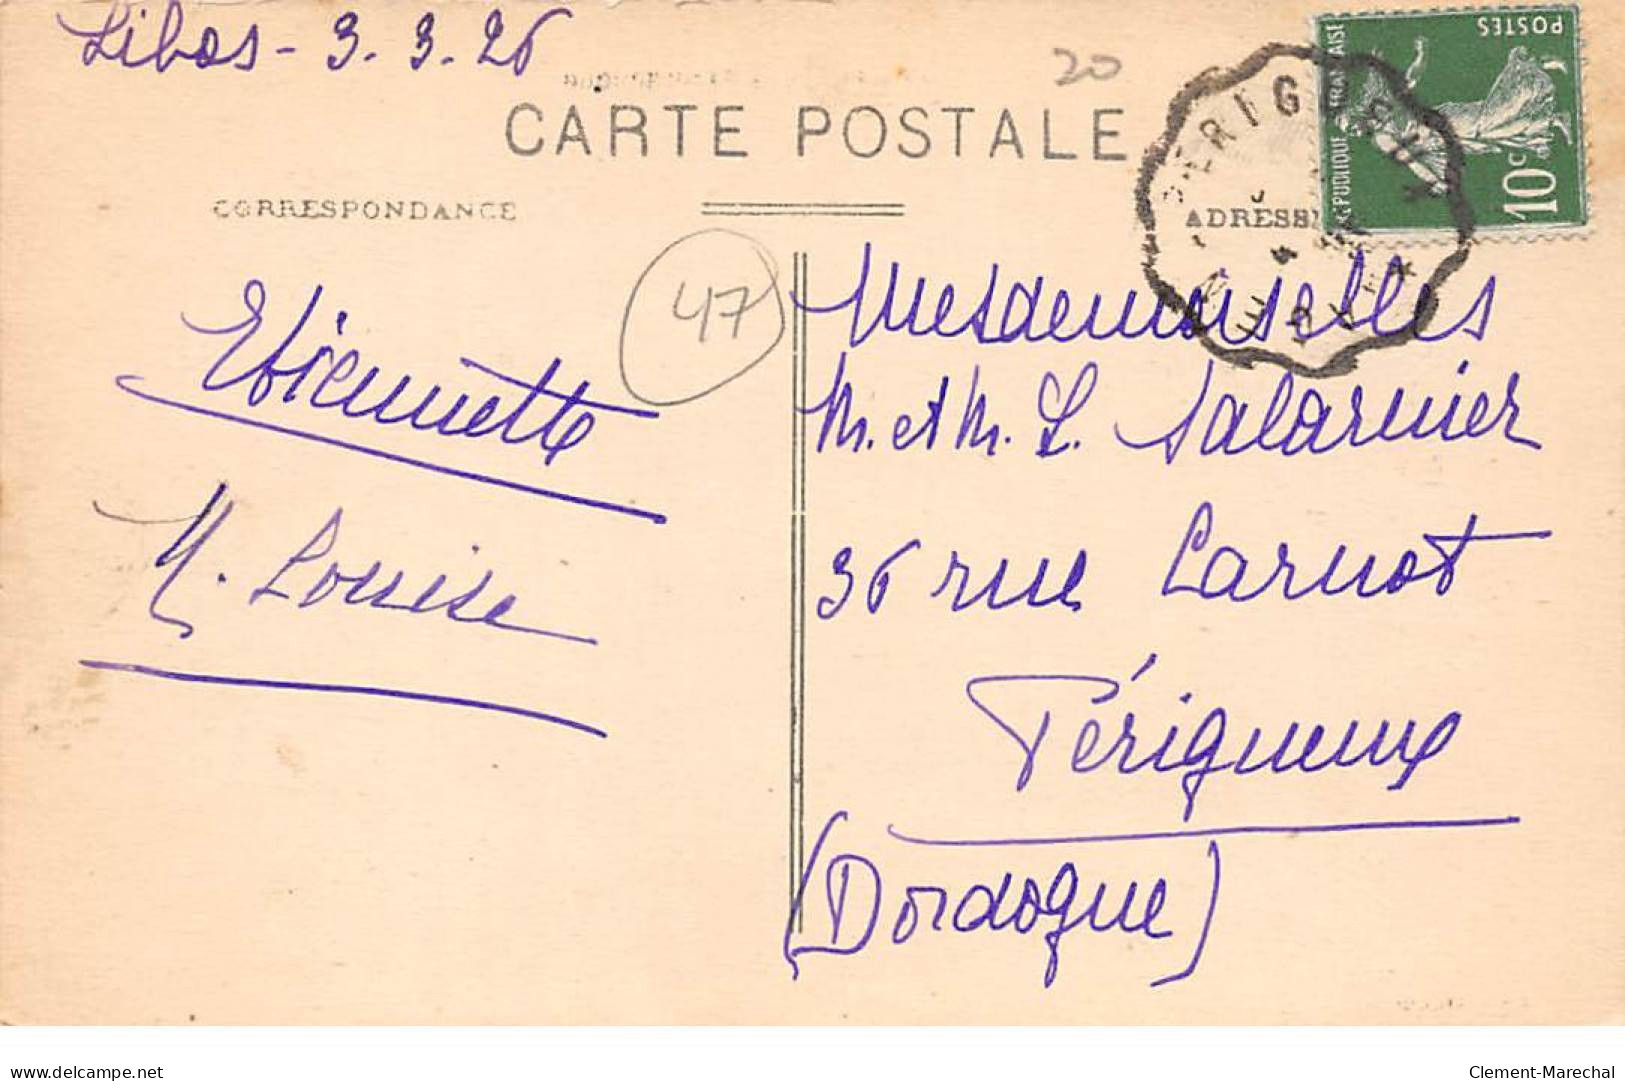 Libos - 3. 3. 26
20
CARTE POSTALE
CORRESPONDANCE
ADRESSE
POSTES
REPUBLIQUE FRANÇAISE
10c
PERIGUEUX
47
Etiennette
M. Louise
Mesdemoiselles
M. et M. L. Salarnier
36 rue Carnot
Périgueux
(Dordogne)
www.delcampe.net
Clement-Marechal